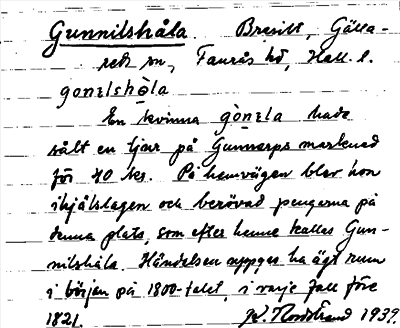 Gunnilshåla. Bresilt, Gälla-
red sn, Faurås hd, Hall. l.
gonelshòla
En kvinna gònela hade
sålt en tjur på Gunnarps marknad
för 40 kr. På hemvägen blev hon
ihjälslagen och berövad pengarna på
denna plats, som efter henne kallas Gun-
nilshåla. Händelsen uppges ha ägt rum
i början på 1800-talet, i varje fall före
1821. K. Nordstrand 1939